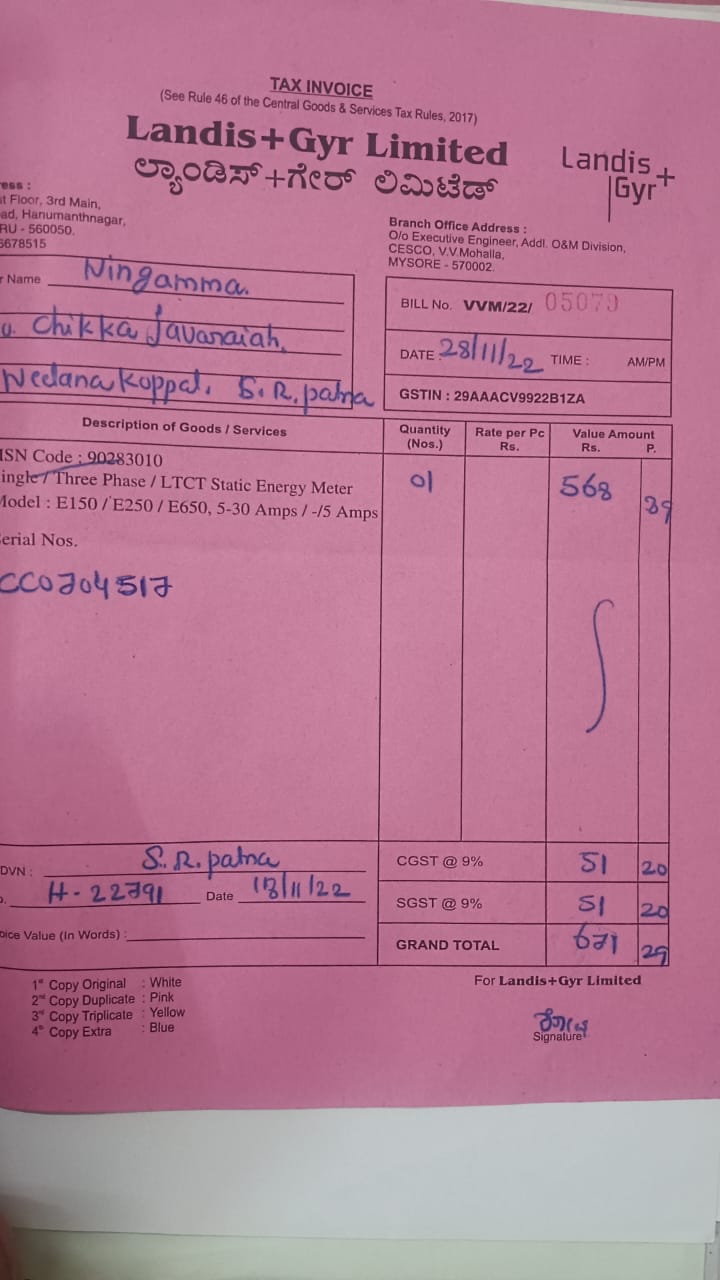 TAX INVOICE
(See Rule 46 of the Central Goods & Services Tax Rules, 2017)
Landis+Gyr Limited
ಲ್ಯಾಂಡಿಸ್+ಗೇರ್ ಲಿಮಿಟೆಡ್
Landis+
Gyr
ess :
t Floor, 3rd Main,
ad, Hanumanthnagar,
RU - 560050.
5678515
Branch Office Address :
O/o Executive Engineer, Addl. O&M Division,
CESCO, V.V.Mohalla,
MYSORE - 570002.
r Name Ningamma.
Chikka Javaraiah,
Neelanakoppal, S.R.patna
BILL No. VVM/22/ 05079
DATE : 28/11/22 TIME : AM/PM
GSTIN : 29AAACV9922B1ZA
Description of Goods / Services Quantity (Nos.) Rate per Pc Rs. Value Amount Rs. P.
ISN Code : 90283010
ingle / Three Phase / LTCT Static Energy Meter 01 568 39
Model : E150 / E250 / E650, 5-30 Amps / -/5 Amps
erial Nos.
CC0704517
DVN : S.R.patna
H-22791 Date 18/11/22
oice Value (In Words) :
CGST @ 9% 51 20
SGST @ 9% 51 20
GRAND TOTAL 671 29
1st Copy Original : White
2nd Copy Duplicate : Pink
3rd Copy Triplicate : Yellow
4th Copy Extra : Blue
For Landis+Gyr Limited
Signature